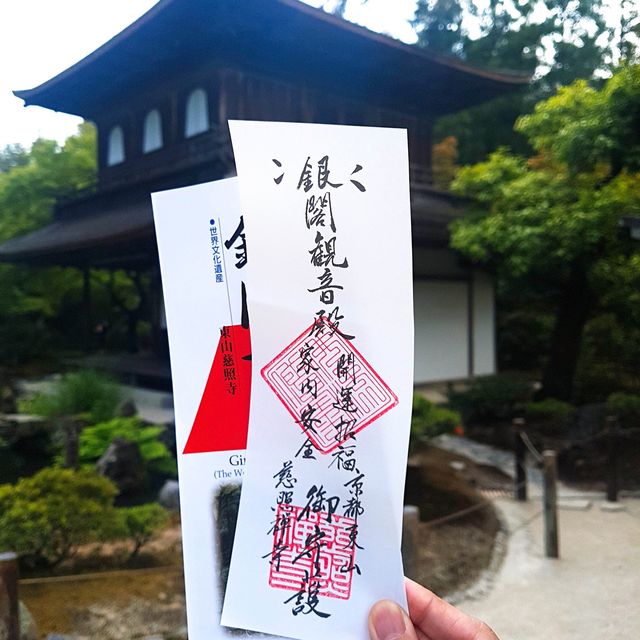 銀閣観音殿
開運招福
家内安全
京都東山
慈照禅寺
御守護
●世界文化遺産
銀
東山慈照寺
Gin
(The Wo